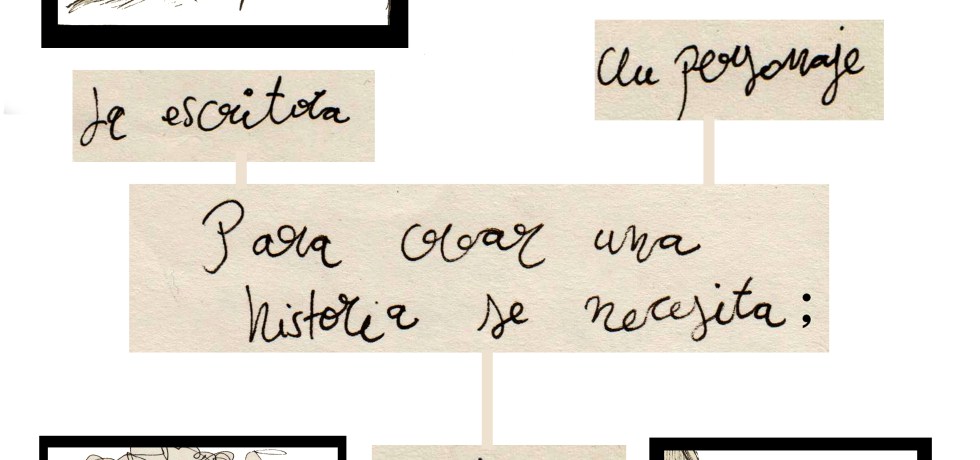 Un personaje
La escritora
Para crear una
historia se necesita;